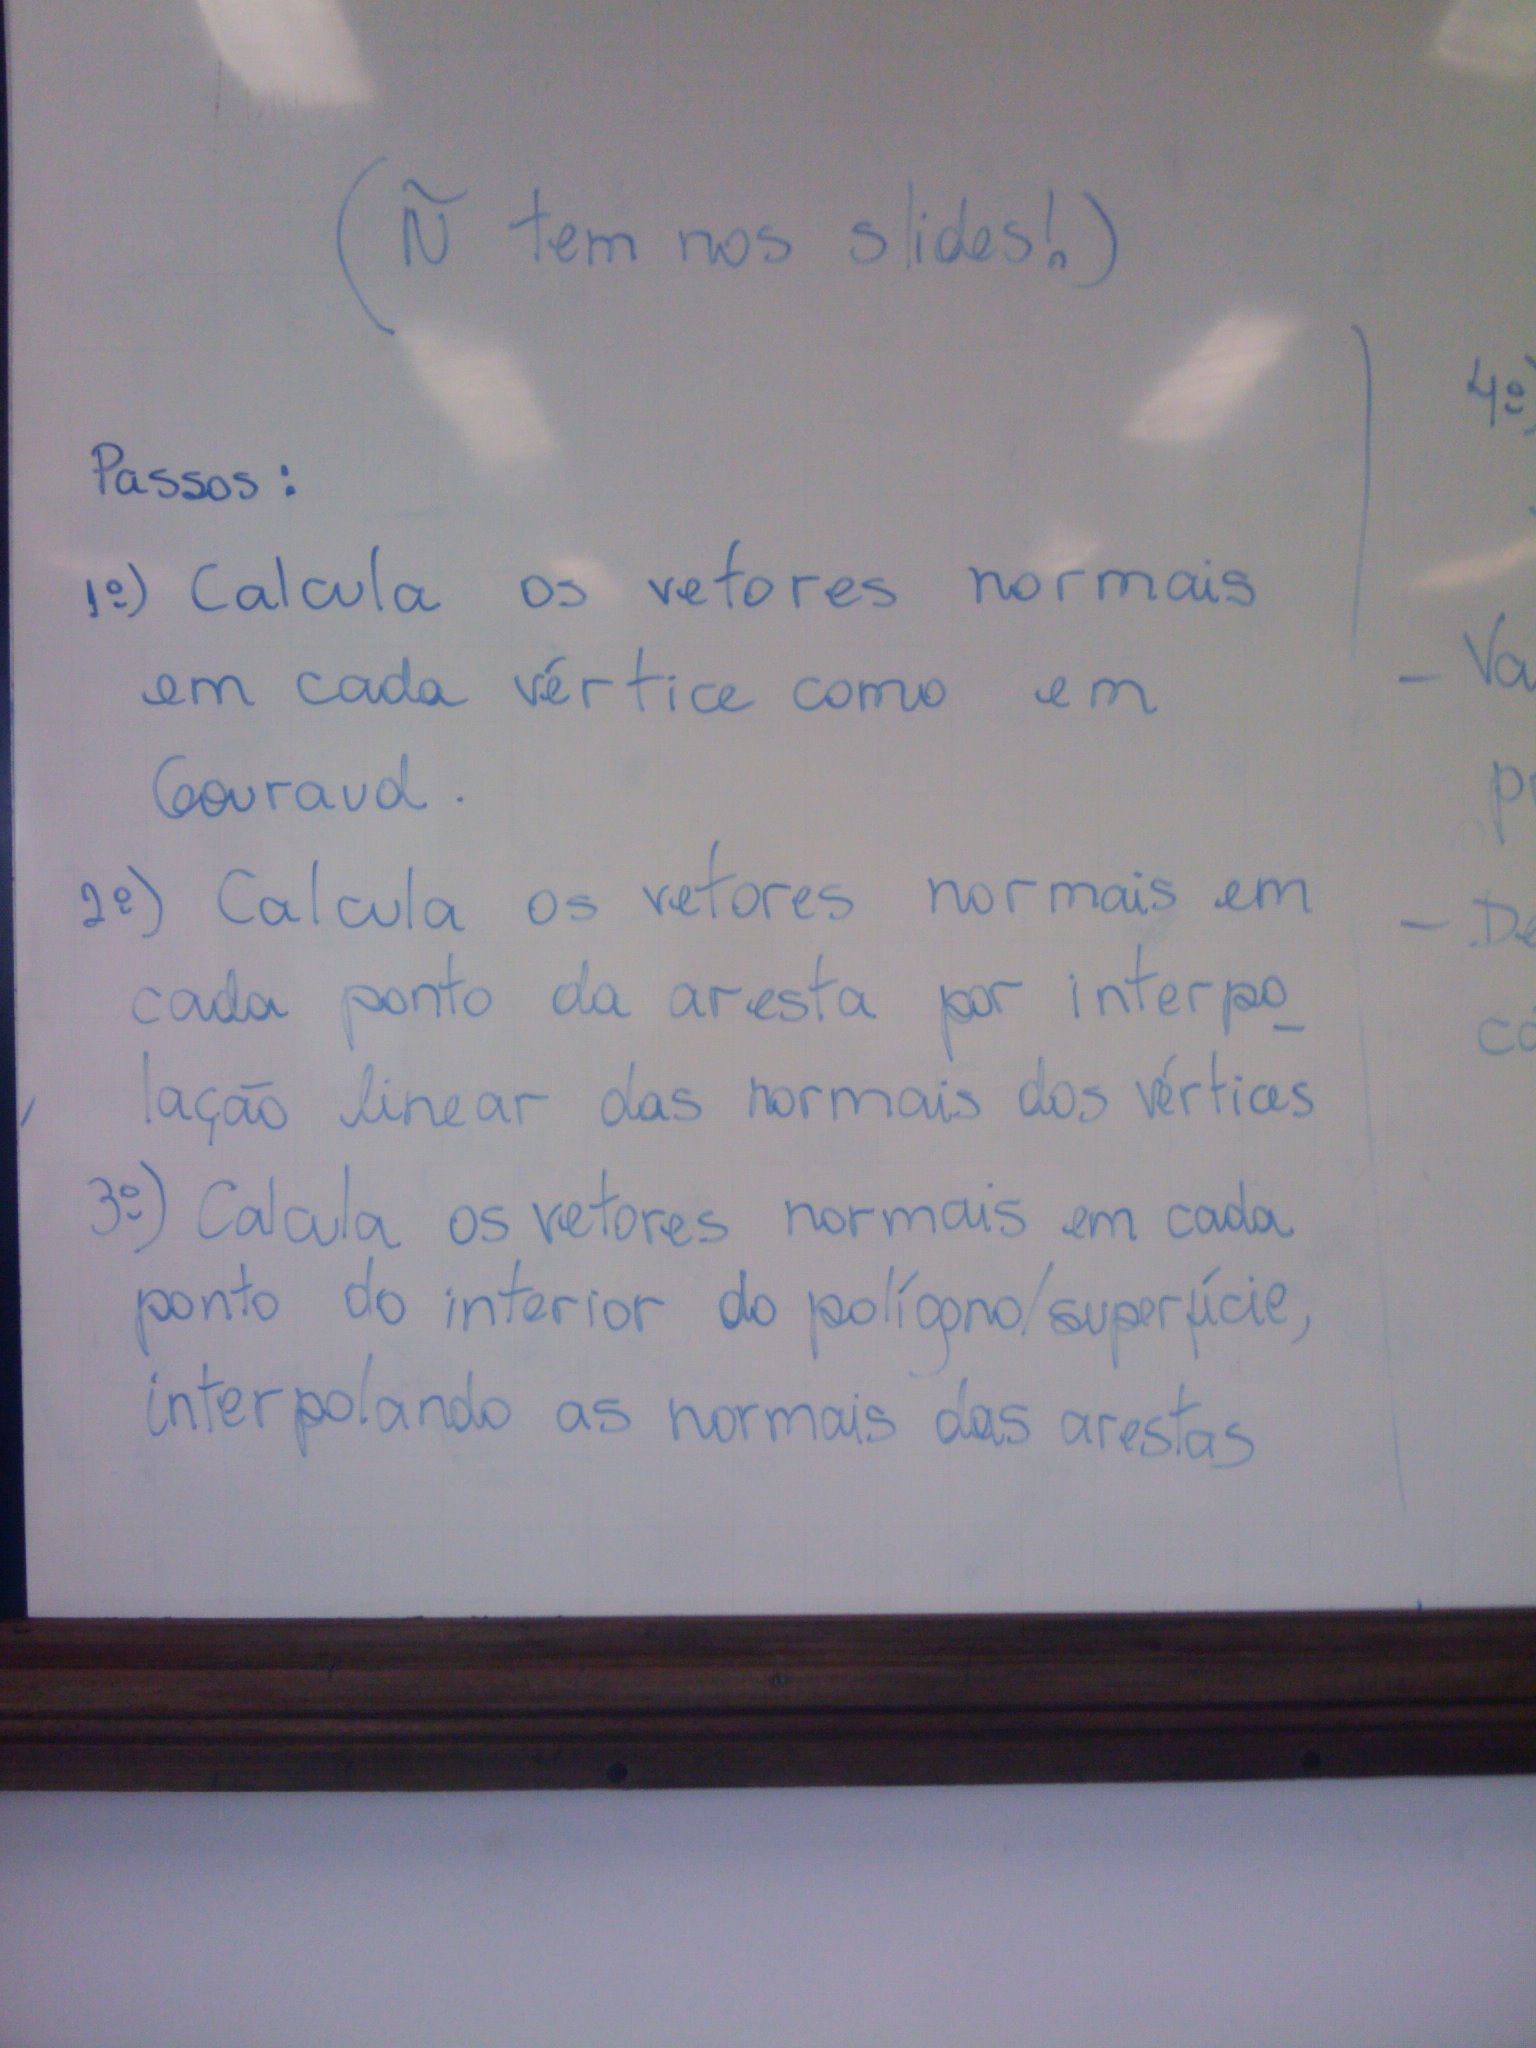 (Ñ tem nos slides!)
Passos:
1º) Calcula os vetores normais
em cada vértice como em
Gouraud.
2º) Calcula os vetores normais em
cada ponto da aresta por interpo_
lação linear das normais dos vértices
3º) Calcula os vetores normais em cada
ponto do interior do polígono/superfície,
interpolando as normais das arestas
4º)